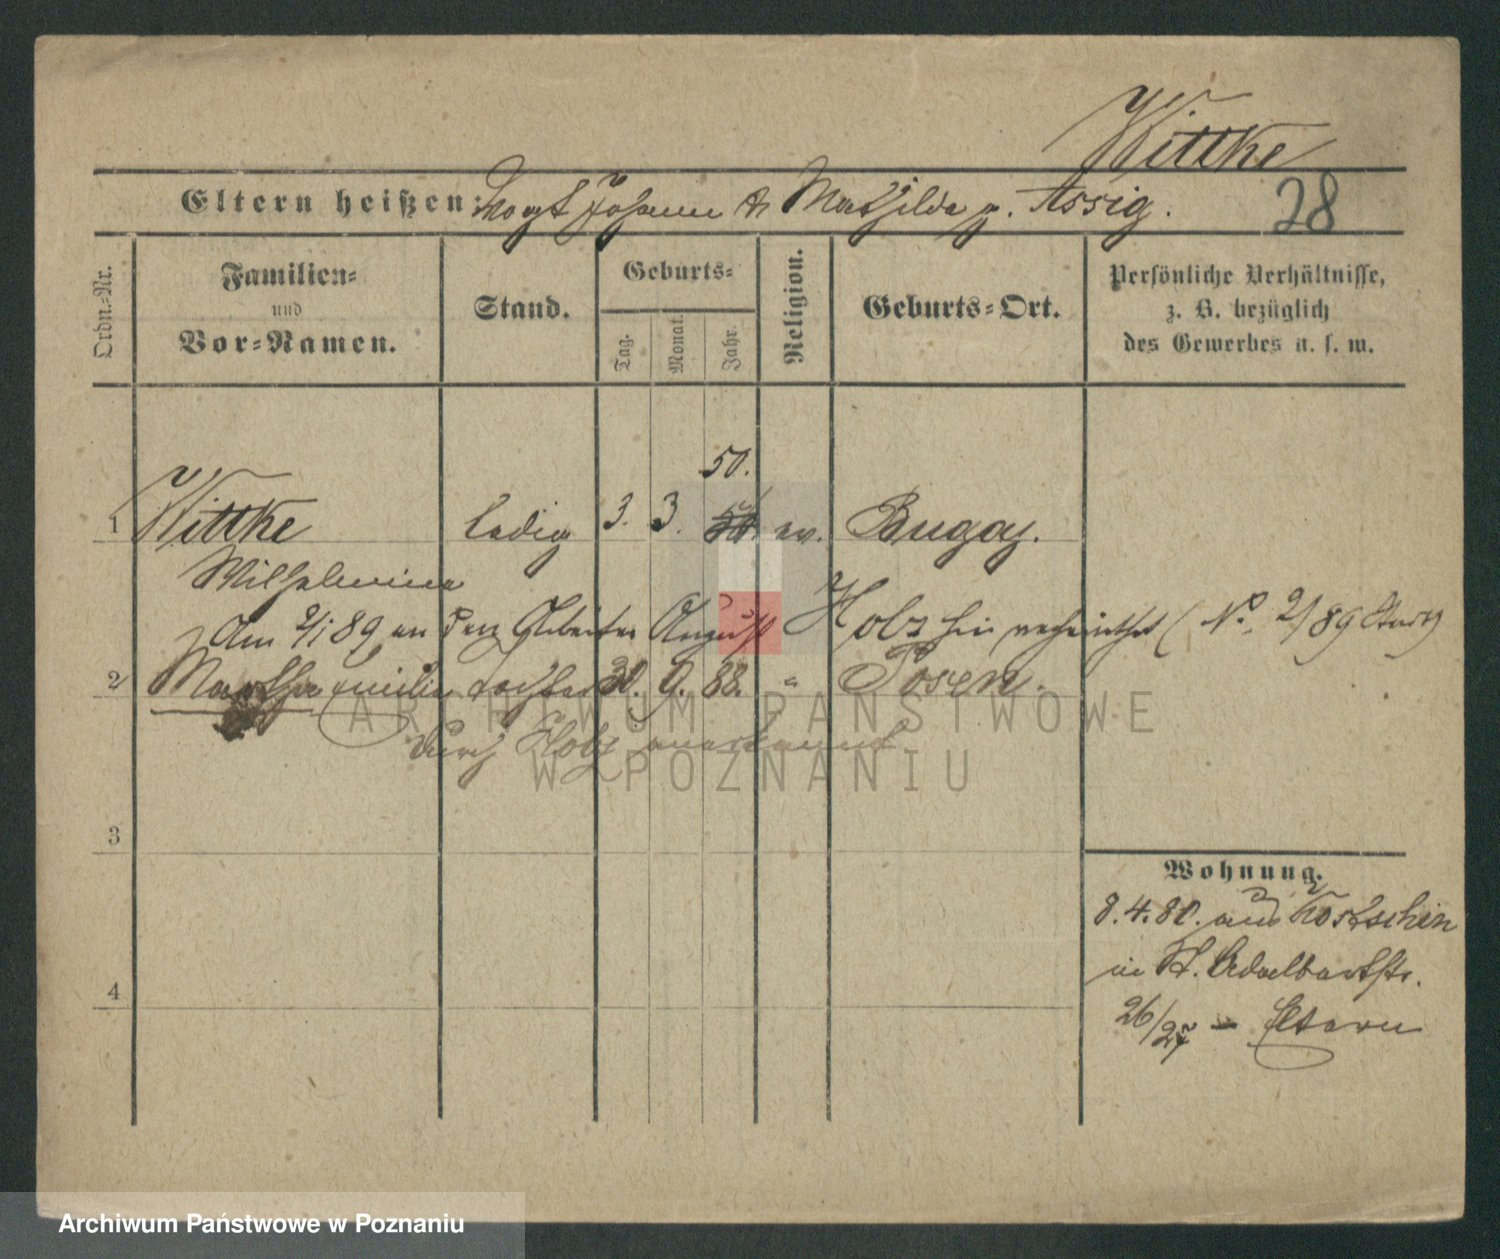 Wittke
Eltern heißen: Vogt Johann & Mathilde g. Assig.
28
Ordn.-Nr.
Familien-
und
Vor-Namen.
Stand.
Geburts-
Tag.
Monat.
Jahr.
Religion.
Geburts-Ort.
Persönliche Verhältnisse,
z. B. bezüglich
des Gewerbes u. s. w.
50.
1 Wittke ledig 3. 3. ev. Bugay.
Wilhelmine
Am 2/1 89 an den Arbeiter August Holz hier verheirathet (No. 2/89
2 Martha Emilie Tochter 30. 9. 88. " Posen.
durch Holz anerkannt
ARCHIWUM PAŃSTWOWE
W POZNANIU
3
4
Wohnung.
8.4.80. aus Kostschin
in St. Adalbertstr.
26/27 – Eltern
Archiwum Państwowe w Poznaniu